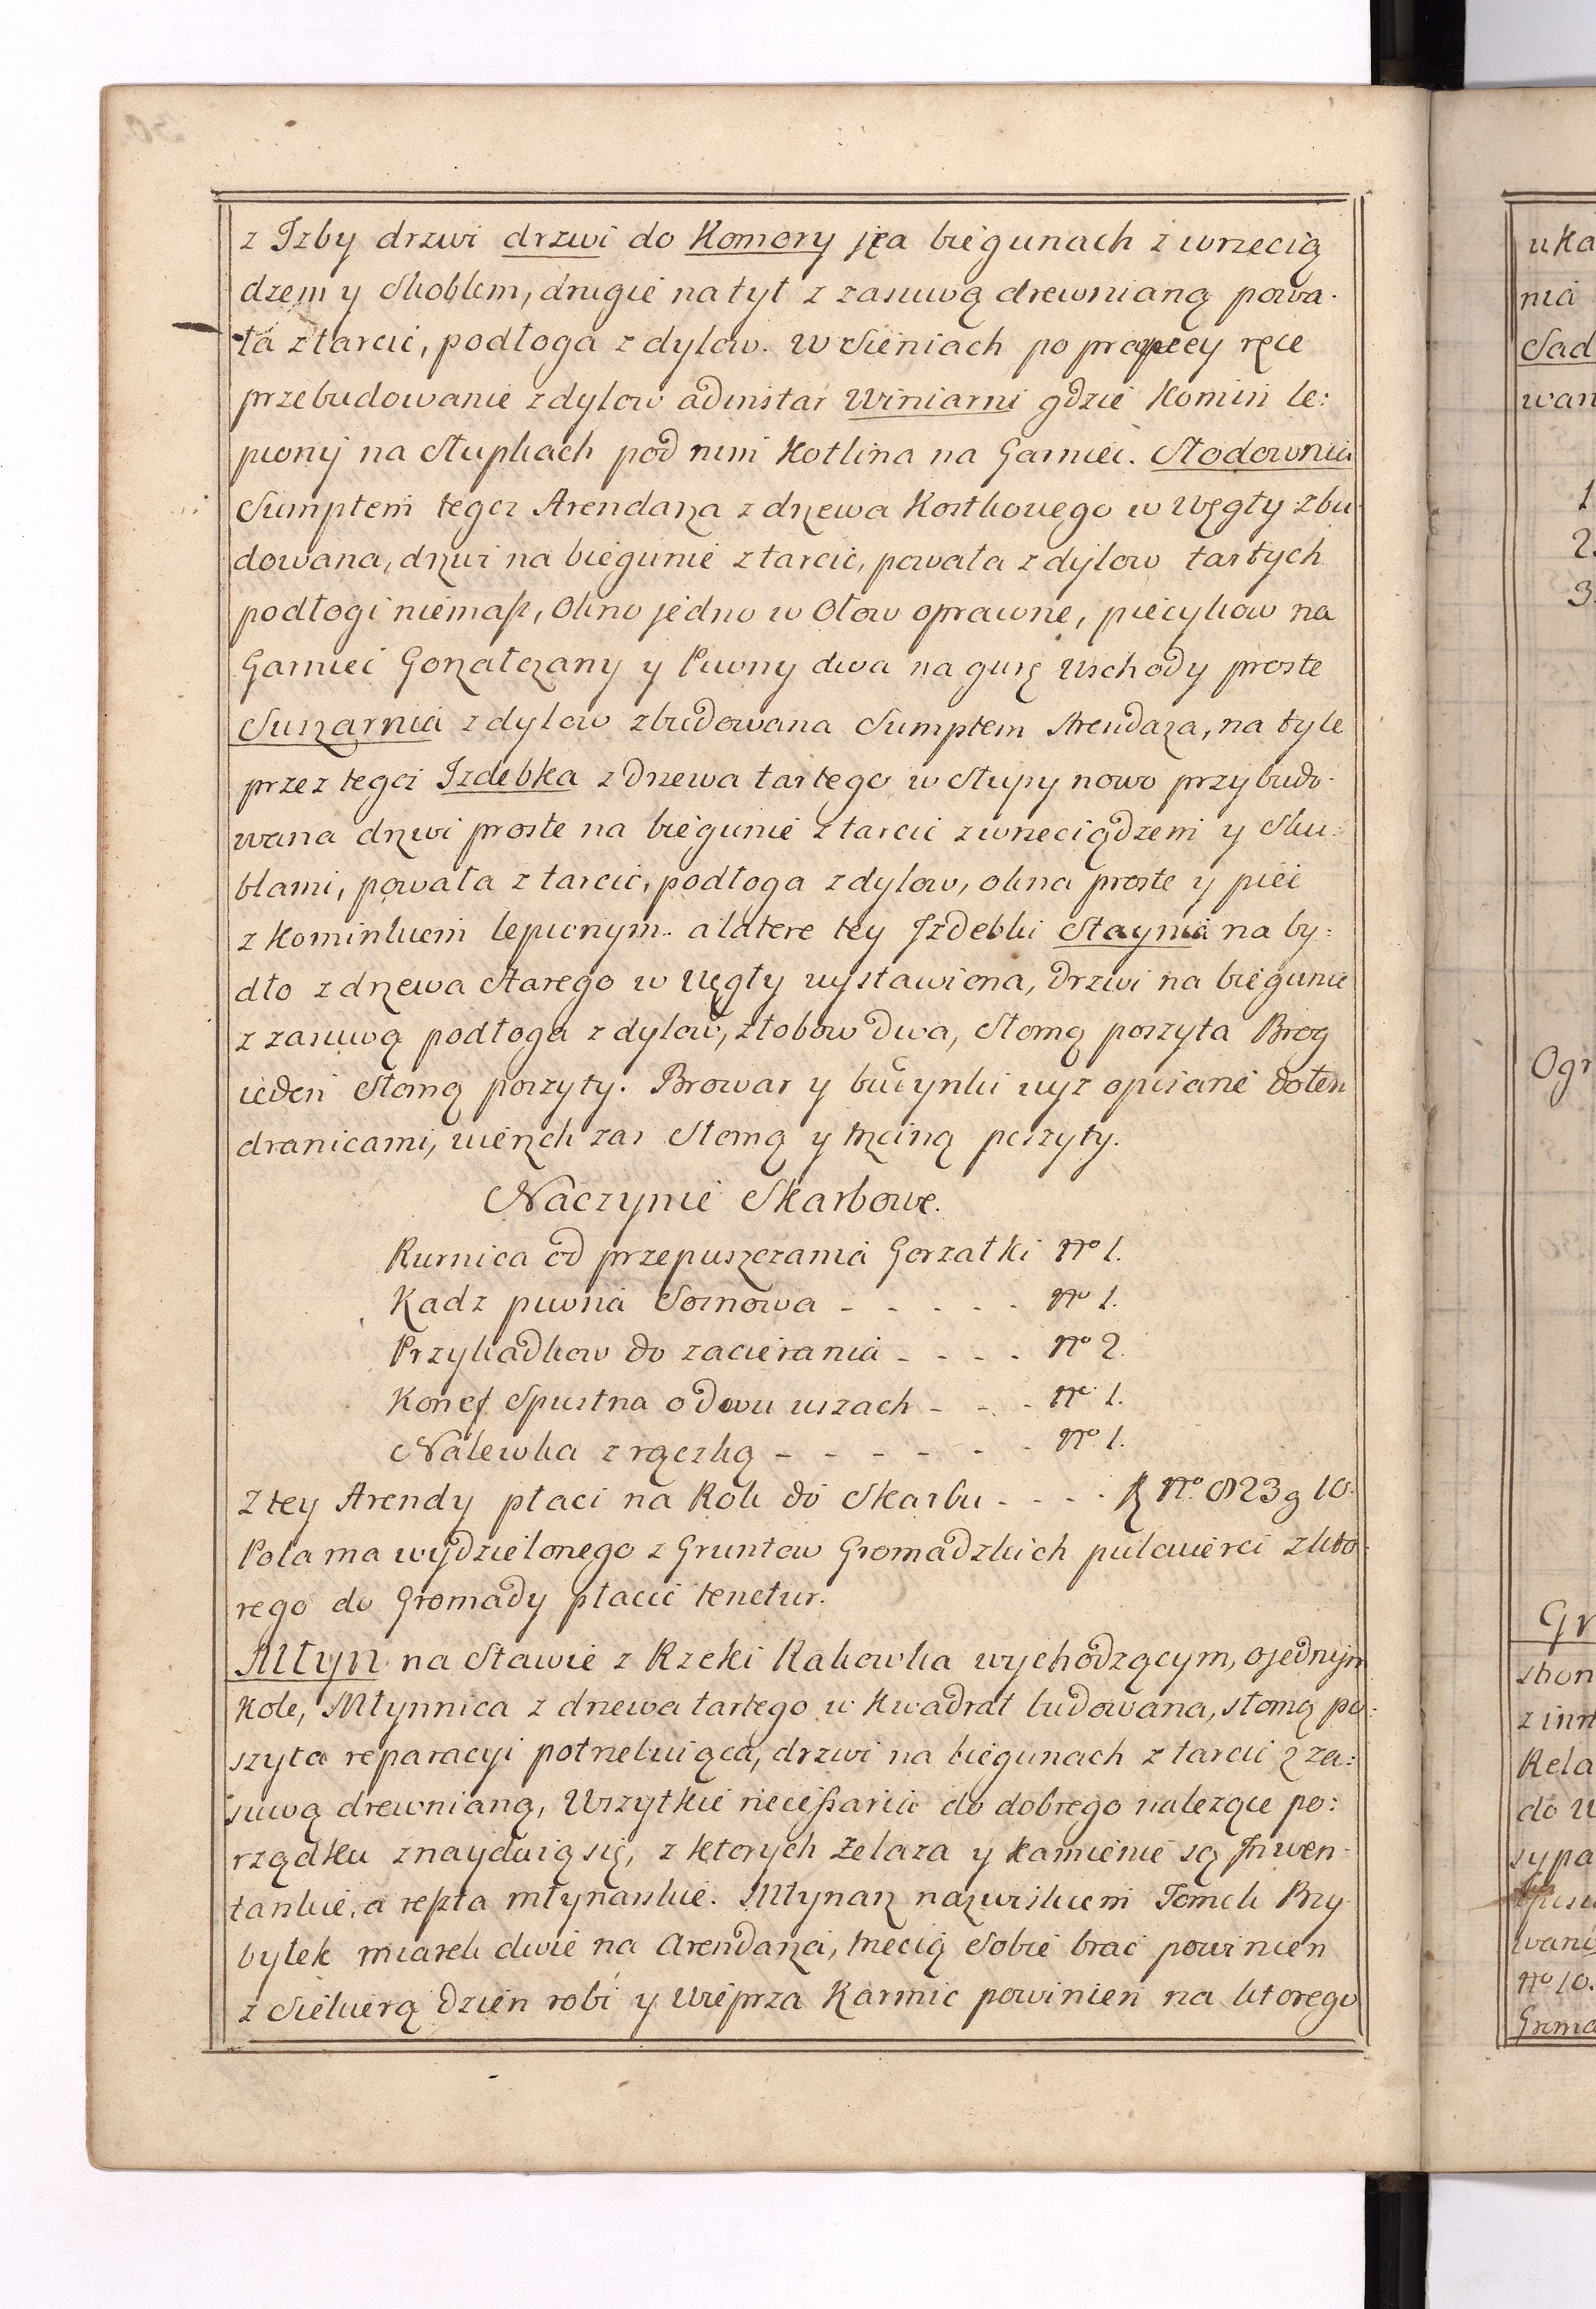 z Izby drzwi drzwi do Komory są na biegunach z wrzecią
dzem y Skoblem, drugie na tył z zasuwą drewnianą powa-
ła z tarcic, podłoga z dylow. W Sieniach po prawey ręce
przebudowanie z dylow adinstar Winiarni gdzie Komin le:
piony na Słupkach pod nim Kotlina na Garniec. Słodownia
Sumptem tegoż Arendarza z drzewa Kostkowego w Węgły zbu-
dowana, drzwi na biegunie z tarcic, powała z dylow tartych
podłogi niemasz, Okno jedno w Ołow oprawne, piecykow na
Garniec Gorzałczany y Piwny dwa na gurę Wschody proste
Suszarnia z dylow zbudowana Sumptem Arendarza, na tyle
przez tegoż Izdebka z Drzewa tartego w Słupy nowo przybudo-
wana drzwi proste na biegunie z tarcic z wrzeciądzem y Sku:
blami, powała z tarcic, podłoga z dylow, okna proste y piec
z Kominkiem lepionym. a latere tey Izdebki Staynia na by:
dło z drzewa Starego w Węgły wystawiona, Drzwi na biegunie
z zasuwą podłoga z dylow, złobow Dwa, Słomą poszyta Brog
ieden Słomą poszyty. Browar y budynki wyz opisane Dołem
dranicami, wierzch zas Słomą y trzciną poszyty.
Naczynie Skarbowe.
Rurnica od przepuszczania Gorzałki No 1.
Kadz piwna Sosnowa - - - - - No 1.
Przykadkow do zacierania - - - - No 2.
Konef Spustna o Dwu uszach - - - No 1.
Nalewka z rączką - - - - - - No 1.
Z tey Arendy płaci na Rok do Skarbu - - - - No. 823 g 10.
Pola ma wydzielonego z Gruntow Gromadzkich pułcwierci z kto-
rego do Gromady płacić tenetur.
Młyn na Stawie z Rzeki Rakowka wychodzącym, o jednym
Kole, Młynnica z drzewa tartego w Kwadrat budowana, słomą po:
szyta reparacyi potrzebuiąca, drzwi na biegunach z tarcic z za:
suwą drewnianą, Wszytkie necessaria do dobrego nalezące po:
rządku znayduią się, z ktorych Zelaza y kamienie są Inwen-
tarskie, a reszta młynarskie. Młynarz nazwiskiem Tomek Przy
byłek miarek dwie na Arendarza, trzecią Sobie brac powinien
z Siekierą Dzien robi y Wieprza Karmic powinien na ktorego